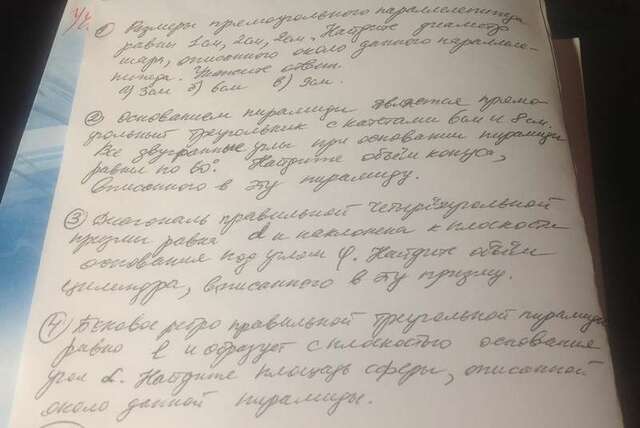 1) Размеры прямоугольного параллелепипеда
равны 1см, 2см, 2см. Найдите диаметр
шара, описанного около данного параллеле-
пипеда. Укажите ответ.
а) 3см б) 6см в) 9см.
2) Основанием пирамиды является прямо-
угольный треугольник с катетами 6см и 8см.
Все двугранные углы при основании пирамиды
равны по 60°. Найдите объём конуса,
вписанного в эту пирамиду.
3) Диагональ правильной четырёхугольной
призмы равна d и наклонена к плоскости
основания под углом φ. Найдите объём
цилиндра, вписанного в эту призму.
4) Боковое ребро правильной треугольной пирамиды
равно l и образует с плоскостью основания
угол α. Найдите площадь сферы, описанной
около данной пирамиды.